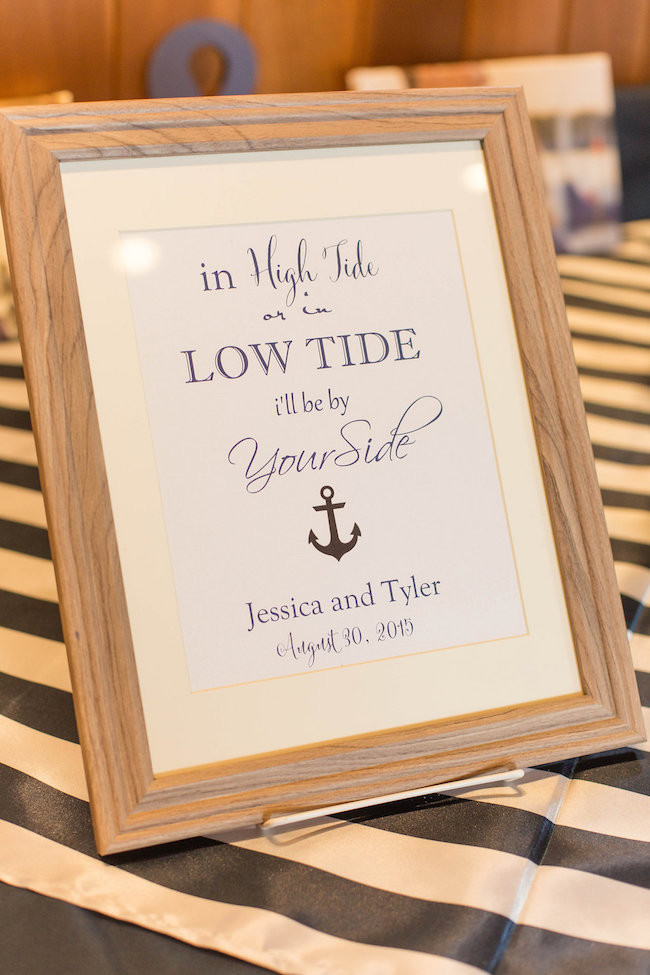 in High Tide
or in
LOW TIDE
i'll be by
Your Side
Jessica and Tyler
August 30, 2015